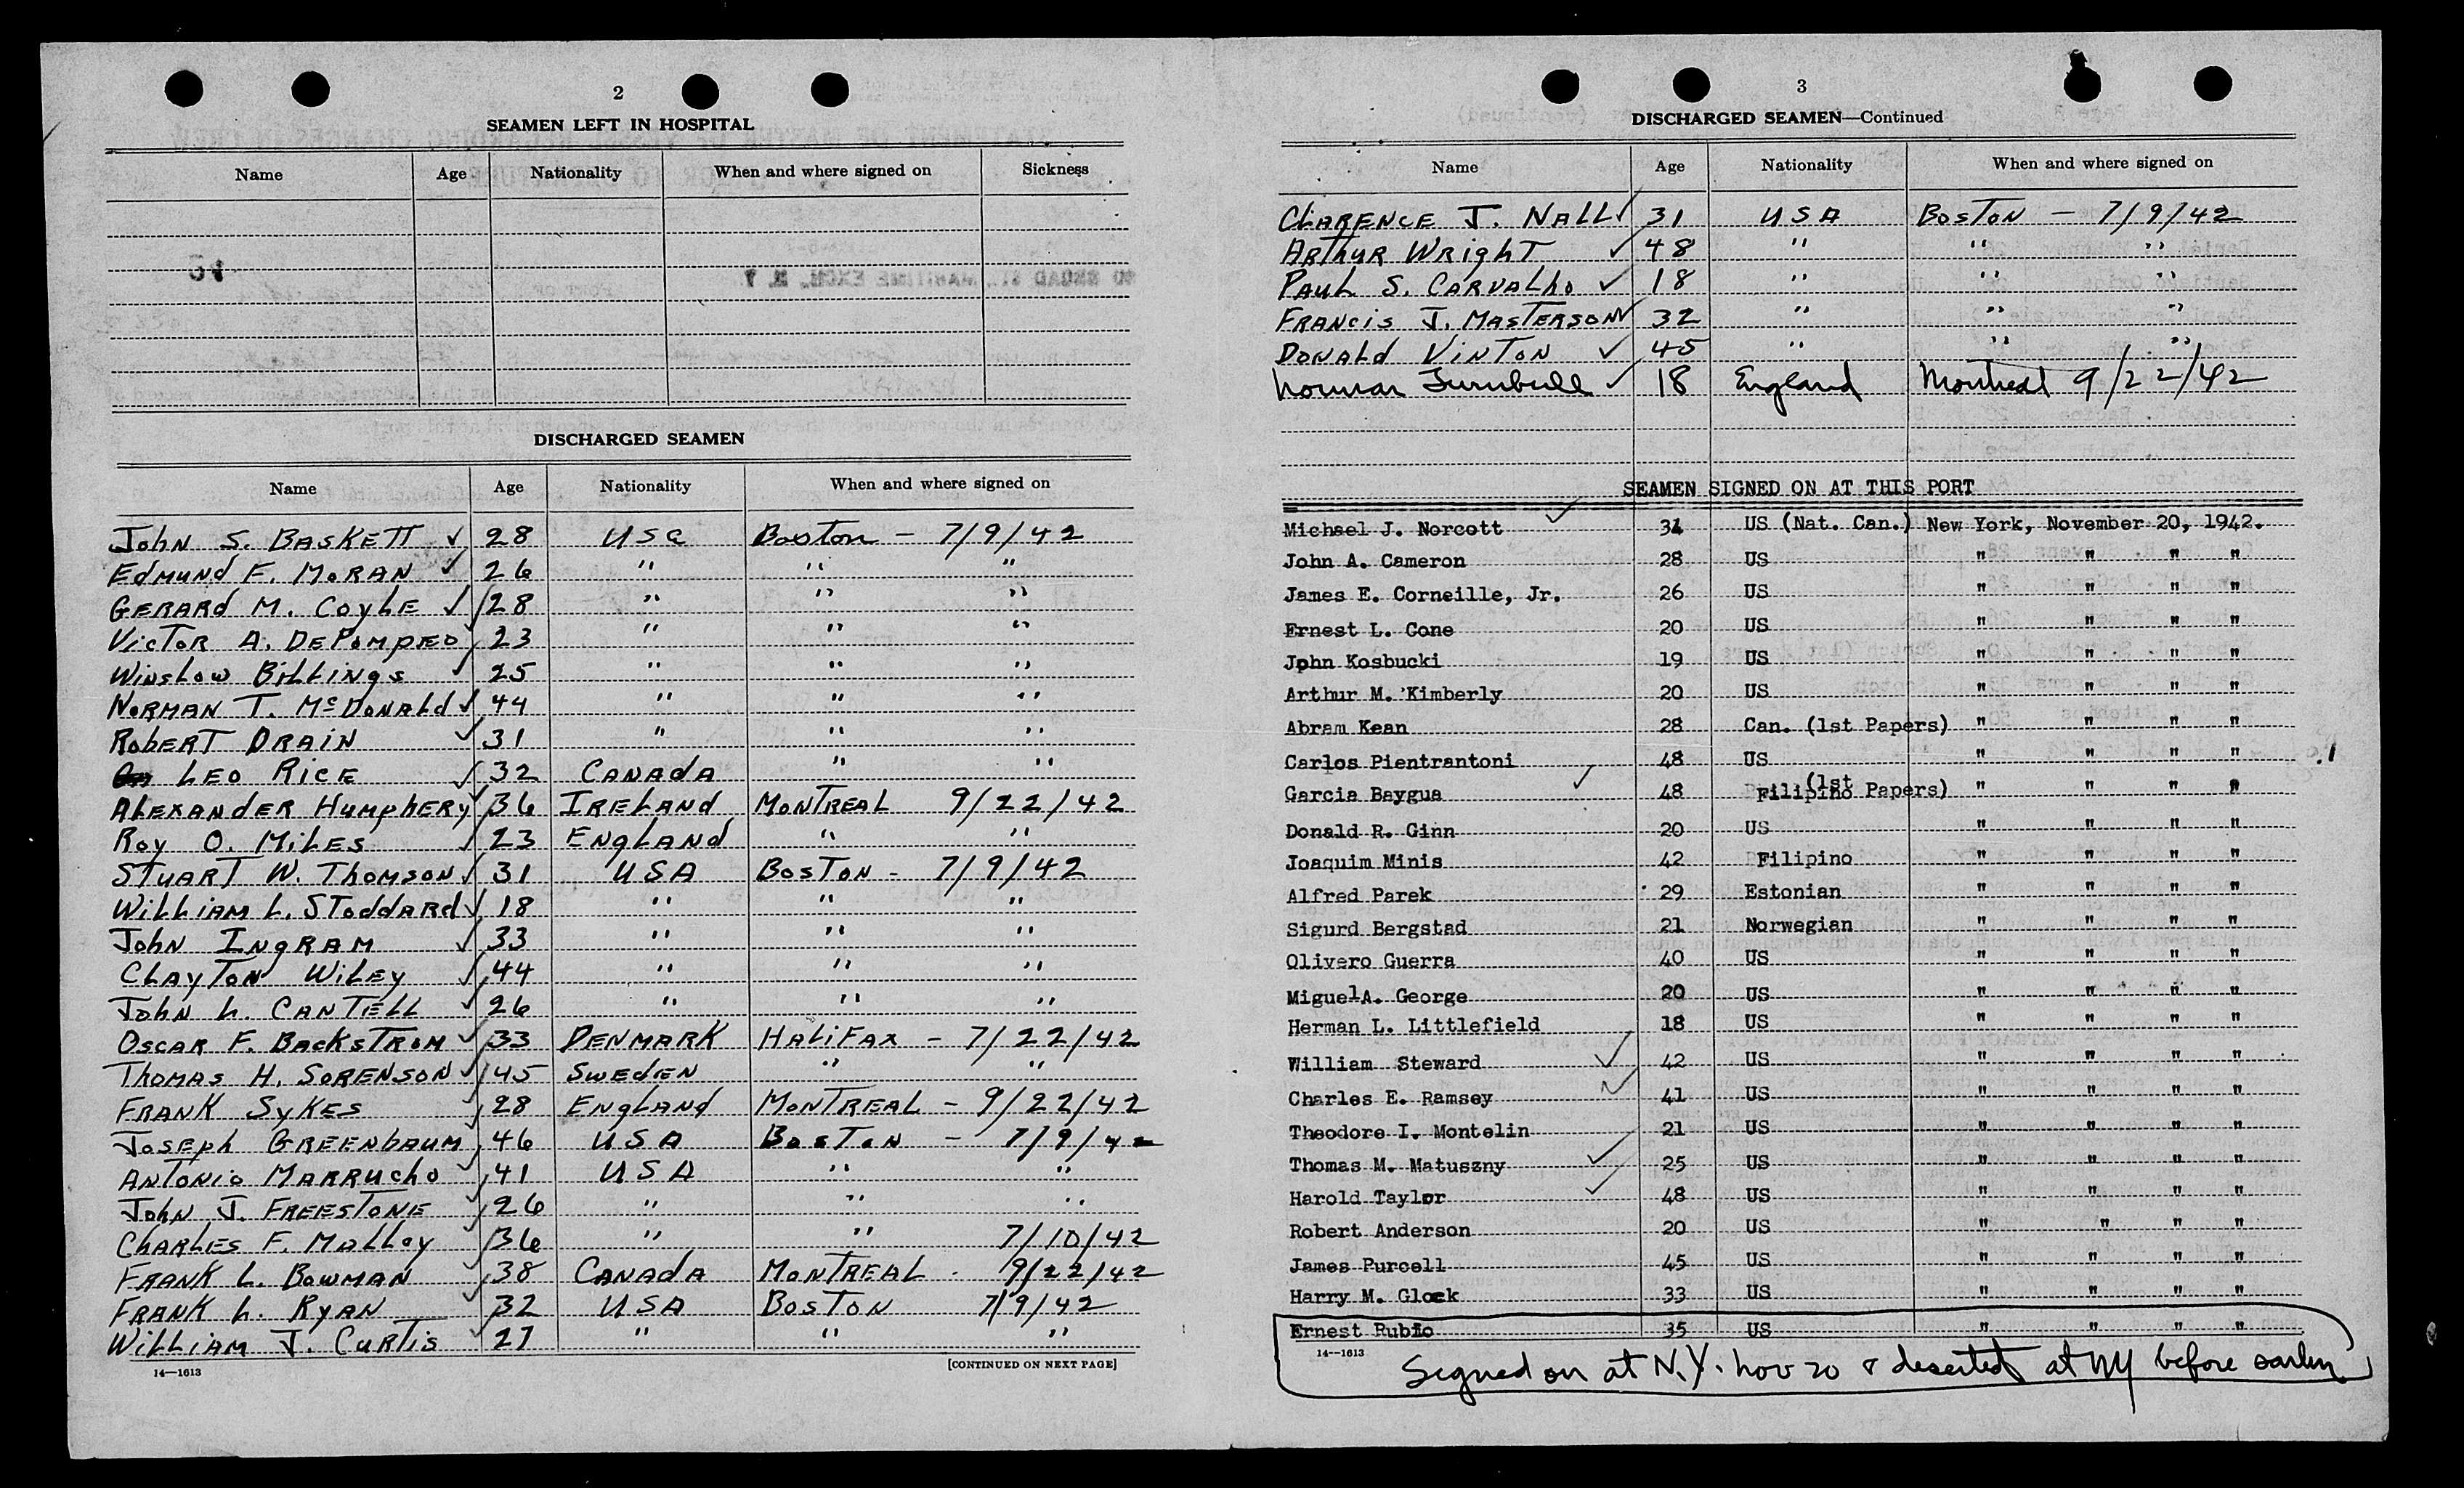 2
SEAMEN LEFT IN HOSPITAL
Name Age Nationality When and where signed on Sickness
DISCHARGED SEAMEN
Name Age Nationality When and where signed on
John S. BASKETT ✓ 28 USA Boston - 7/9/42
EDMUND F. MORAN ✓ 26 " " "
GERARD M. COYLE ✓ 28 " " "
VICTOR A. DEPOMPEO ✓ 23 " " "
WINSLOW BILLINGS ✓ 25 " " "
NORMAN T. McDONALD ✓ 44 " " "
ROBERT DRAIN ✓ 31 " " "
LEO RICE ✓ 32 CANADA " "
ALEXANDER HUMPHERY ✓ 36 IRELAND MONTREAL 9/22/42
ROY O. MILES ✓ 23 ENGLAND " "
STUART W. THOMSON ✓ 31 USA BOSTON - 7/9/42
WILLIAM L. STODDARD ✓ 18 " " "
JOHN INGRAM ✓ 33 " " "
CLAYTON WILEY ✓ 44 " " "
JOHN L. CANTELL ✓ 26 " " "
OSCAR F. BACKSTROM ✓ 33 DENMARK HALIFAX - 7/22/42
THOMAS H. SORENSON ✓ 45 SWEDEN " "
FRANK SYKES ✓ 28 ENGLAND MONTREAL - 9/22/42
JOSEPH GREENBAUM ✓ 46 USA BOSTON - 7/9/42
ANTONIO MARRUCHO ✓ 41 USA " "
JOHN J. FREESTONE ✓ 26 " " "
CHARLES F. MOLLOY ✓ 36 " " 7/10/42
FRANK L. BOWMAN ✓ 38 CANADA MONTREAL - 9/22/42
FRANK L. RYAN ✓ 32 USA BOSTON 7/9/42
WILLIAM J. CURTIS ✓ 27 " " "
14—1613 [CONTINUED ON NEXT PAGE]
3
DISCHARGED SEAMEN—Continued
Name Age Nationality When and where signed on
CLARENCE J. NALL ✓ 31 USA BOSTON - 7/9/42
ARTHUR WRIGHT ✓ 48 " " "
PAUL S. CARVALHO ✓ 18 " " "
FRANCIS J. MASTERSON ✓ 32 " " "
DONALD VINTON ✓ 45 " " "
Norman Turnbull ✓ 18 England Montreal 9/22/42
SEAMEN SIGNED ON AT THIS PORT
Michael J. Norcott ✓ 31 US (Nat. Can.) New York, November 20, 1942.
John A. Cameron 28 US " " " "
James E. Corneille, Jr. 26 US " " " "
Ernest L. Cone 20 US " " " "
John Kosbucki 19 US " " " "
Arthur M. Kimberly 20 US " " " "
Abram Kean 28 Can. (1st Papers) " " " "
Carlos Pientrantoni 48 US " " " "
Garcia Baygua ✓ 48 Filipino (1st Papers) " " " "
Donald R. Ginn 20 US " " " "
Joaquim Minis 42 Filipino " " " "
Alfred Parek 29 Estonian " " " "
Sigurd Bergstad 21 Norwegian " " " "
Olivero Guerra 40 US " " " "
Miguel A. George 20 US " " " "
Herman L. Littlefield 18 US " " " "
William Steward ✓ 42 US " " " "
Charles E. Ramsey ✓ 41 US " " " "
Theodore I. Montelin 21 US " " " "
Thomas M. Matuszny ✓ 25 US " " " "
Harold Taylor ✓ 48 US " " " "
Robert Anderson 20 US " " " "
James Purcell 45 US " " " "
Harry M. Glock 33 US " " " "
Ernest Rubio 35 US " " " "
14—1613
Signed on at N.Y. Nov 20 & deserted at NY before